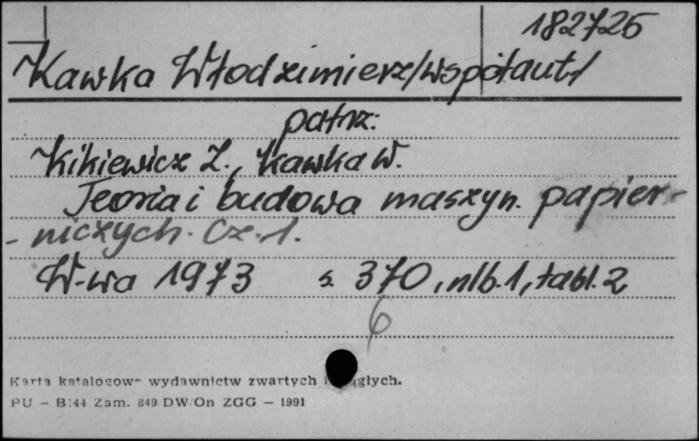 182726
Kawka Włodzimierz/współaut./
patrz:
Kikiewicz Z., Kawka W.
Teoria i budowa maszyn. papier-
- niczych. Cz. 1.
W-wa 1973 s. 370, nlb. 1, tabl. 2
6
Karta katalogowa wydawnictw zwartych i ciągłych.
PU — B144 Zam. 849 DW/On ZGG — 1991